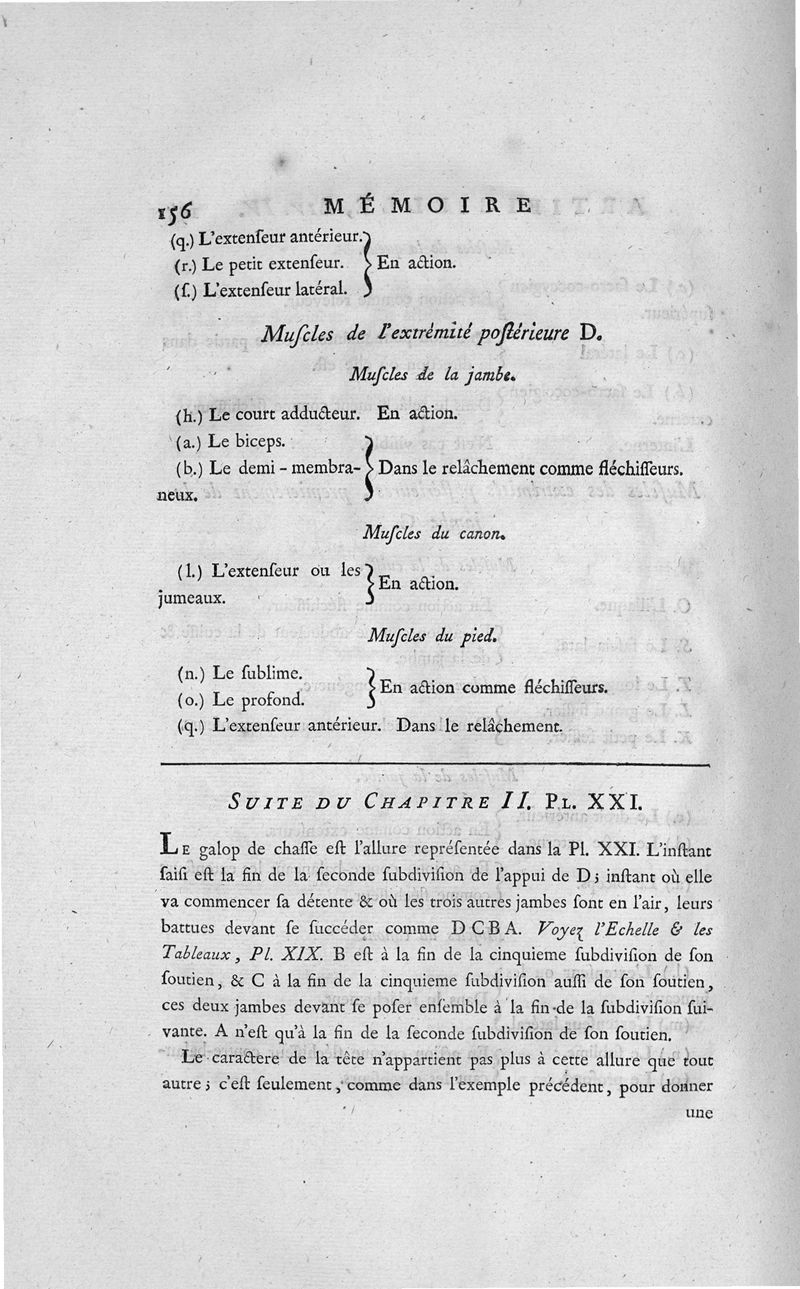 156 MÉMOIRE
(q.) L'extenſeur antérieur.
(r.) Le petit extenſeur. } En action.
(ſ.) L'extenſeur latéral.
Muſcles de l'extrémité poſtérieure D.
Muſcles de la jambe.
(h.) Le court adducteur. En action.
(a.) Le biceps.
(b.) Le demi - membra- } Dans le relâchement comme fléchiſſeurs.
neux.
Muſcles du canon.
(l.) L'extenſeur ou les } En action.
jumeaux.
Muſcles du pied.
(n.) Le ſublime. } En action comme fléchiſſeurs.
(o.) Le profond.
(q.) L'extenſeur antérieur. Dans le relâchement.
SUITE DU CHAPITRE II. PL. XXI.
LE galop de chaſſe eſt l'allure repréſentée dans la Pl. XXI. L'inſtant
ſaiſi eſt la fin de la ſeconde ſubdiviſion de l'appui de D; inſtant où elle
va commencer ſa détente & où les trois autres jambes ſont en l'air, leurs
battues devant ſe ſuccéder comme D C B A. Voyez l'Echelle & les
Tableaux, Pl. XIX. B eſt à la fin de la cinquieme ſubdiviſion de ſon
ſoutien, & C à la fin de la cinquieme ſubdiviſion auſſi de ſon ſoutien,
ces deux jambes devant ſe poſer enſemble à la fin de la ſubdiviſion ſui-
vante. A n'eſt qu'à la fin de la ſeconde ſubdiviſion de ſon ſoutien.
Le caractere de la tête n'appartient pas plus à cette allure que tout
autre; c'eſt ſeulement, comme dans l'exemple précédent, pour donner
une